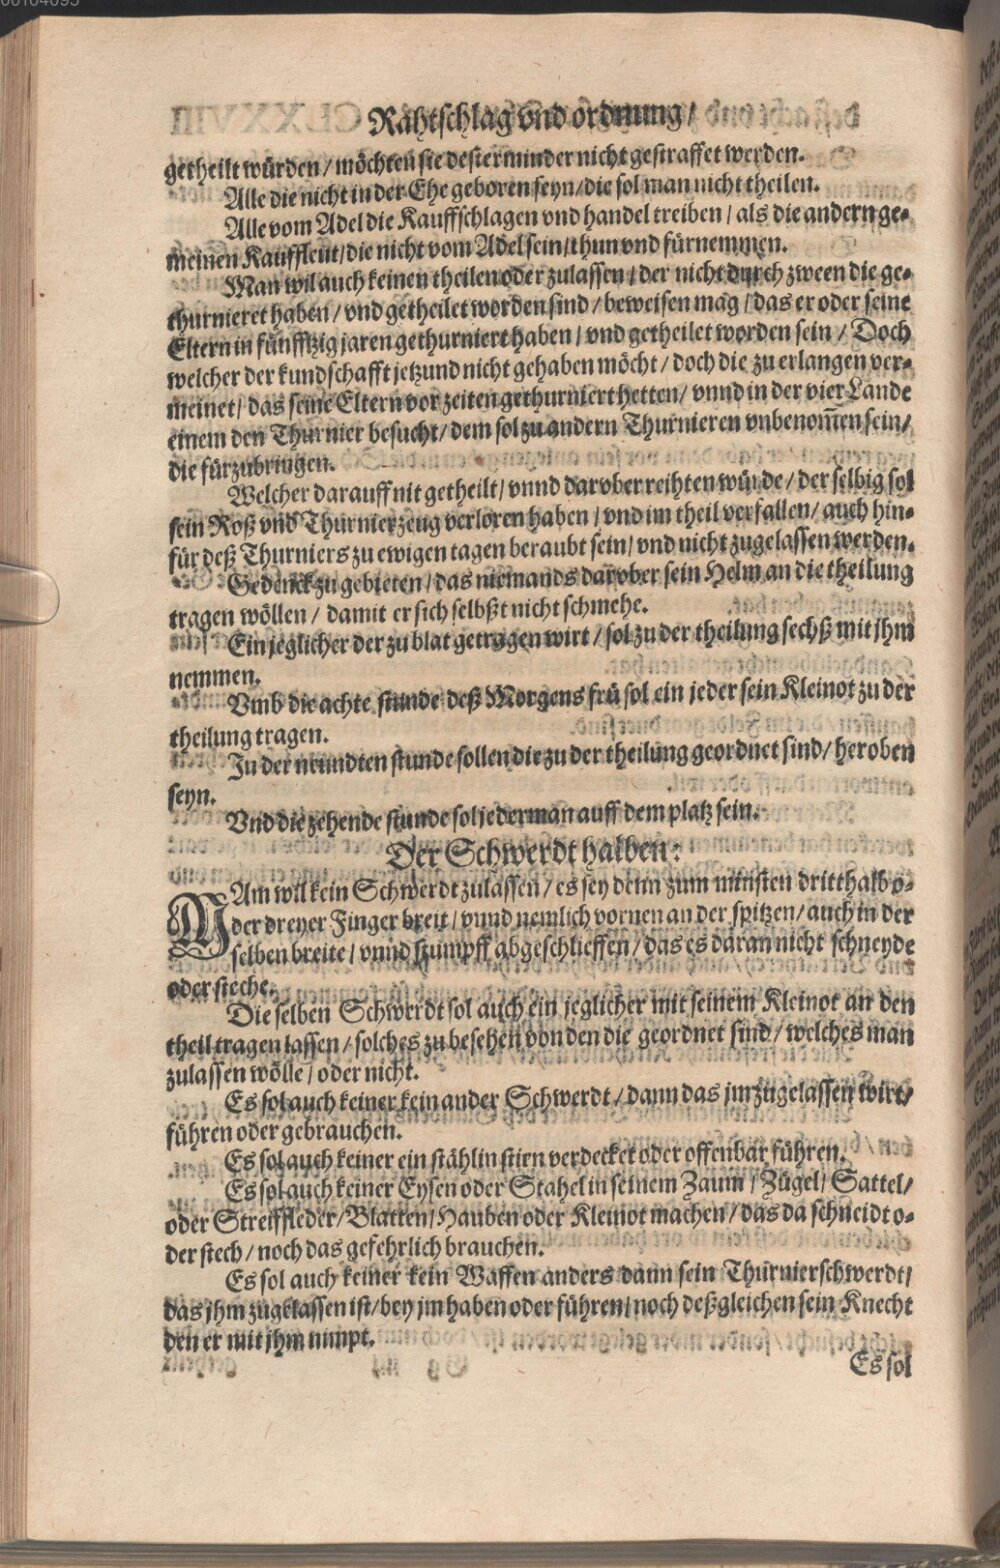 Rähtschlag vnd ordnung /
getheilt würden / möchten sie dester minder nicht gestraffet werden.
Alle die nicht in der Ehe geboren seyn / die sol man nicht theilen.
Alle vom Adel die Kauffschlagen vnd handel treiben / als die andern ge-
meinen Kauffleut / die nicht vom Adel sein / thun vnd fürnemmen.
Man wil auch keinen theilen oder zulassen / der nicht durch zween die ge-
thurnieret haben / vnd getheilet worden sind / beweisen mag / das er oder seine
Eltern in fünfftzig jaren gethurniert haben / vnd getheilet worden sein / Doch
welcher der kundschafft jetzund nicht gehaben möcht / doch die zu erlangen ver-
meinet / das seine Eltern vor zeiten gethurniert hetten / vnnd in der vier Lande
einem den Thurnier besucht / dem sol zu andern Thurnieren vnbenom̄en sein /
die fürzubringen.
Welcher darauff nit getheilt / vnnd darvber reihten würde / der selbig sol
sein Roß vnd Thurnierzeug verloren haben / vnd im theil verfallen / auch hin-
für deß Thurniers zu ewigen tagen beraubt sein / vnd nicht zugelassen werden.
Gedenck zu gebieten / das niemands darvber sein Helm an die theilung
tragen wöllen / damit er sich selbßt nicht schmehe.
Ein jeglicher der zu blat getragen wirt / sol zu der theilung sechß mit jhm
nemmen.
Vmb die achte stunde deß Morgens frü sol ein jeder sein Kleinot zu der
theilung tragen.
In der neundten stunde sollen die zu der theilung geordnet sind / heroben
seyn.
Vnd die zehende stunde sol jederman auff dem platz sein.
Der Schwerdt halben:
MAm wil kein Schwerdt zulassen / es sey denn zum minsten dritthalb o-
der dreyer Finger breit / vnnd nemlich vornen an der spitzen / auch in der
selben breite / vnnd stumpff abgeschlieffen / das es daran nicht schneyde
oder steche.
Die selben Schwerdt sol auch ein jeglicher mit seinem Kleinot an den
theil tragen lassen / solches zu besehen von den die geordnet sind / welches man
zulassen wölle / oder nicht.
Es sol auch keiner kein ander Schwerdt / dann das jm zugelassen wirt /
führen oder gebrauchen.
Es sol auch keiner ein stählin stirn verdecket oder offenbar führen.
Es sol auch keiner Eysen oder Stahel in seinem Zaum / Zügel / Sattel /
oder Streiffleder / Blatten / Hauben oder Kleinot machen / das da schneidt o-
der stech / noch das gefehrlich brauchen.
Es sol auch keiner kein Waffen anders dann sein Thurnierschwerdt /
das jhm zugelassen ist / bey jm haben oder führen / noch deßgleichen sein Knecht
den er mit jhm nimpt.
Es sol